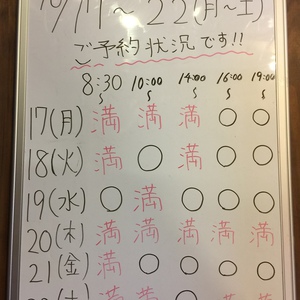 10/17～22(月～土)
ご予約状況です!!
8:30～ 10:00～ 14:00～ 16:00～ 19:00～
17(月) 満 満 満 ○ ○
18(火) 満 ○ 満 ○ ○
19(水) ○ 満 ○ ○ ○
20(木) 満 満 満 満 満
21(金) 満 ○ ○ ○ ○
満 満 ○ ○ ○